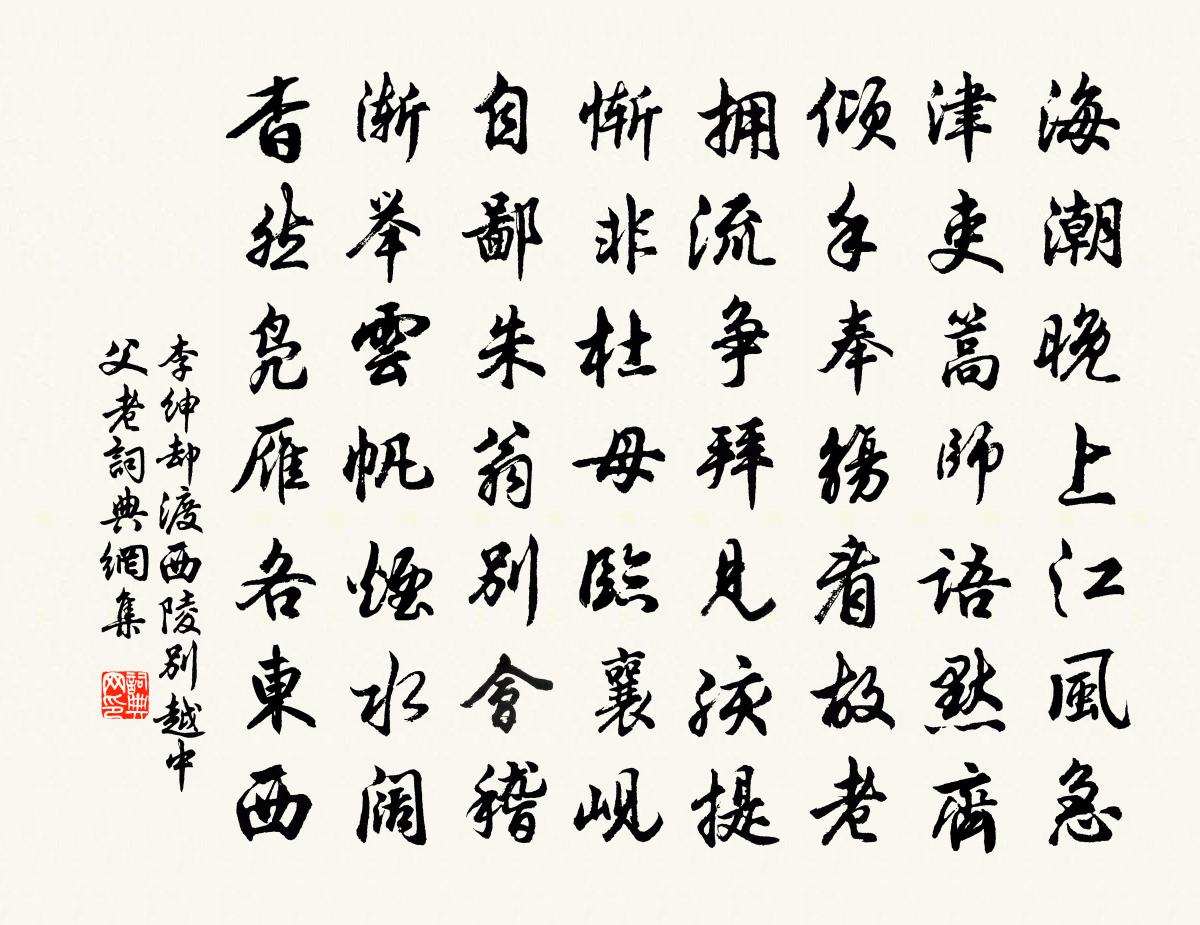 海潮晚上江風急
津吏篙師語默齊
傾手奉觴看故老
拥流争拜見孩提
慚非杜母臨襄峴
自鄙朱翁別會稽
漸举雲帆煙水阔
杳然凫雁各東西
李紳却渡西陵別越中
父老詞典網集
詞典网印